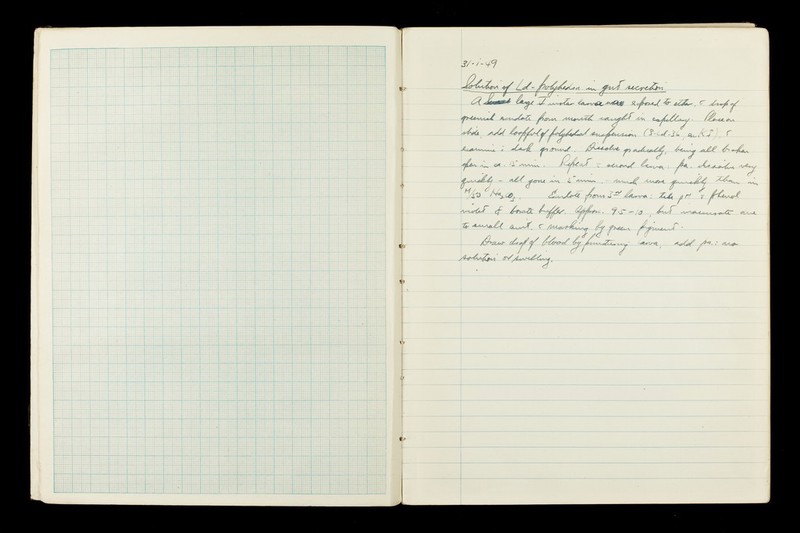 31-1-49
Solution of Ld-polyhedra in gut secretion
A large I instar larva was exposed to ether, c drop of
greenish exudate from mouth caught in capillary. Place on
slide, add loopful of polyhedral suspension
examine c dark ground. Dissolve gradually, being all broken
open in ca. min. Repeat c second larva. dissolve very
quickly - all gone in ½ min. much more quickly than in
M/50 Na2CO3. Exudate from 3rd larva: take pH c phenol
violet & borate buffer. Approx. 9.5-10, but inaccurate due
to small amt. & masking by green pigment.
Draw drop of blood by puncturing larva, add no
solution or swelling.